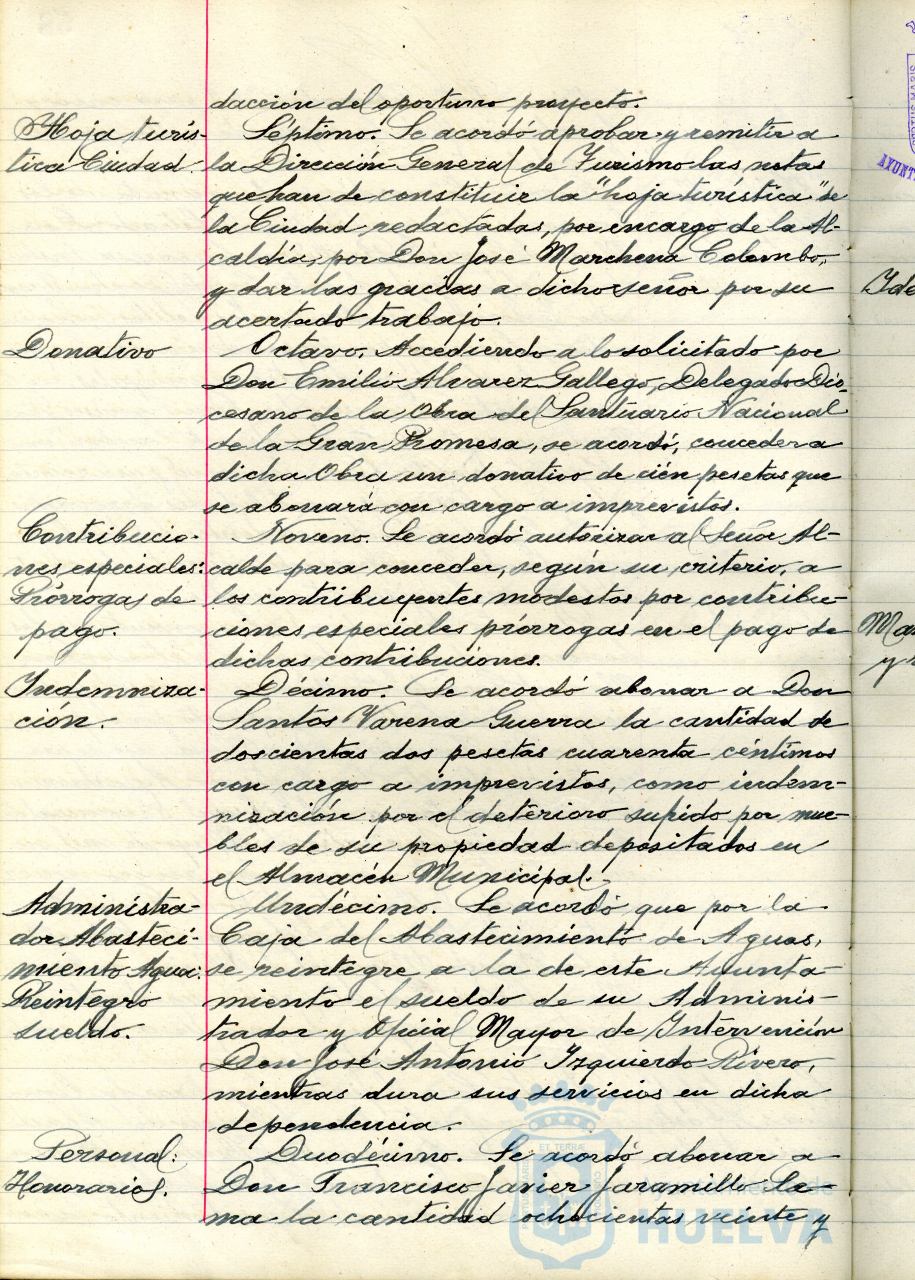 dacción del oportuno proyecto.
Hoja turís-
tica Ciudad.
Séptimo. Se acordó aprobar y remitir a
la Dirección General de Turismo las notas
que han de constituir la "hoja turística" de
la Ciudad redactadas, por encargo de la Al-
caldía, por Don José Marchena Colombo,
y dar las gracias a dicho señor por su
acertado trabajo.
Donativo
Octavo. Accediendo a lo solicitado por
Don Emilio Alvarez Gallego, Delegado Dio-
cesano de la Obra del Santuario Nacional
de la Gran Promesa, se acordó, conceder a
dicha Obra un donativo de cien pesetas que
se abonará con cargo a imprevistos.
Contribucio-
nes especiales:
Prórrogas de
pago.
Noveno. Se acordó autorizar al Señor Al-
calde para conceder, según su criterio, a
los contribuyentes modestos por contribu-
ciones especiales prórrogas en el pago de
dichas contribuciones.
Indemniza-
ción.-
Décimo. Se acordó abonar a Don
Santos Varena Guerra la cantidad de
doscientas dos pesetas cuarenta céntimos
con cargo a imprevistos, como indem-
nización por el deterioro sufrido por mue-
bles de su propiedad depositados en
el Almacén Municipal.-
Administra-
dor Abasteci-
miento Agua:
Reintegro
sueldo.
Undécimo. Se acordó que por la
Caja del Abastecimiento de Aguas,
se reintegre a la de este Ayunta-
miento el sueldo de su Adminis-
trador y Oficial Mayor de Intervención
Don José Antonio Izquierdo Rivero,
mientras dura sus servicios en dicha
dependencia.
Personal:
Honorarios.
Duodécimo. Se acordó abonar a
Don Francisco Javier Jaramillo Le-
ma la cantidad ochocientas veinte y
HUELVA